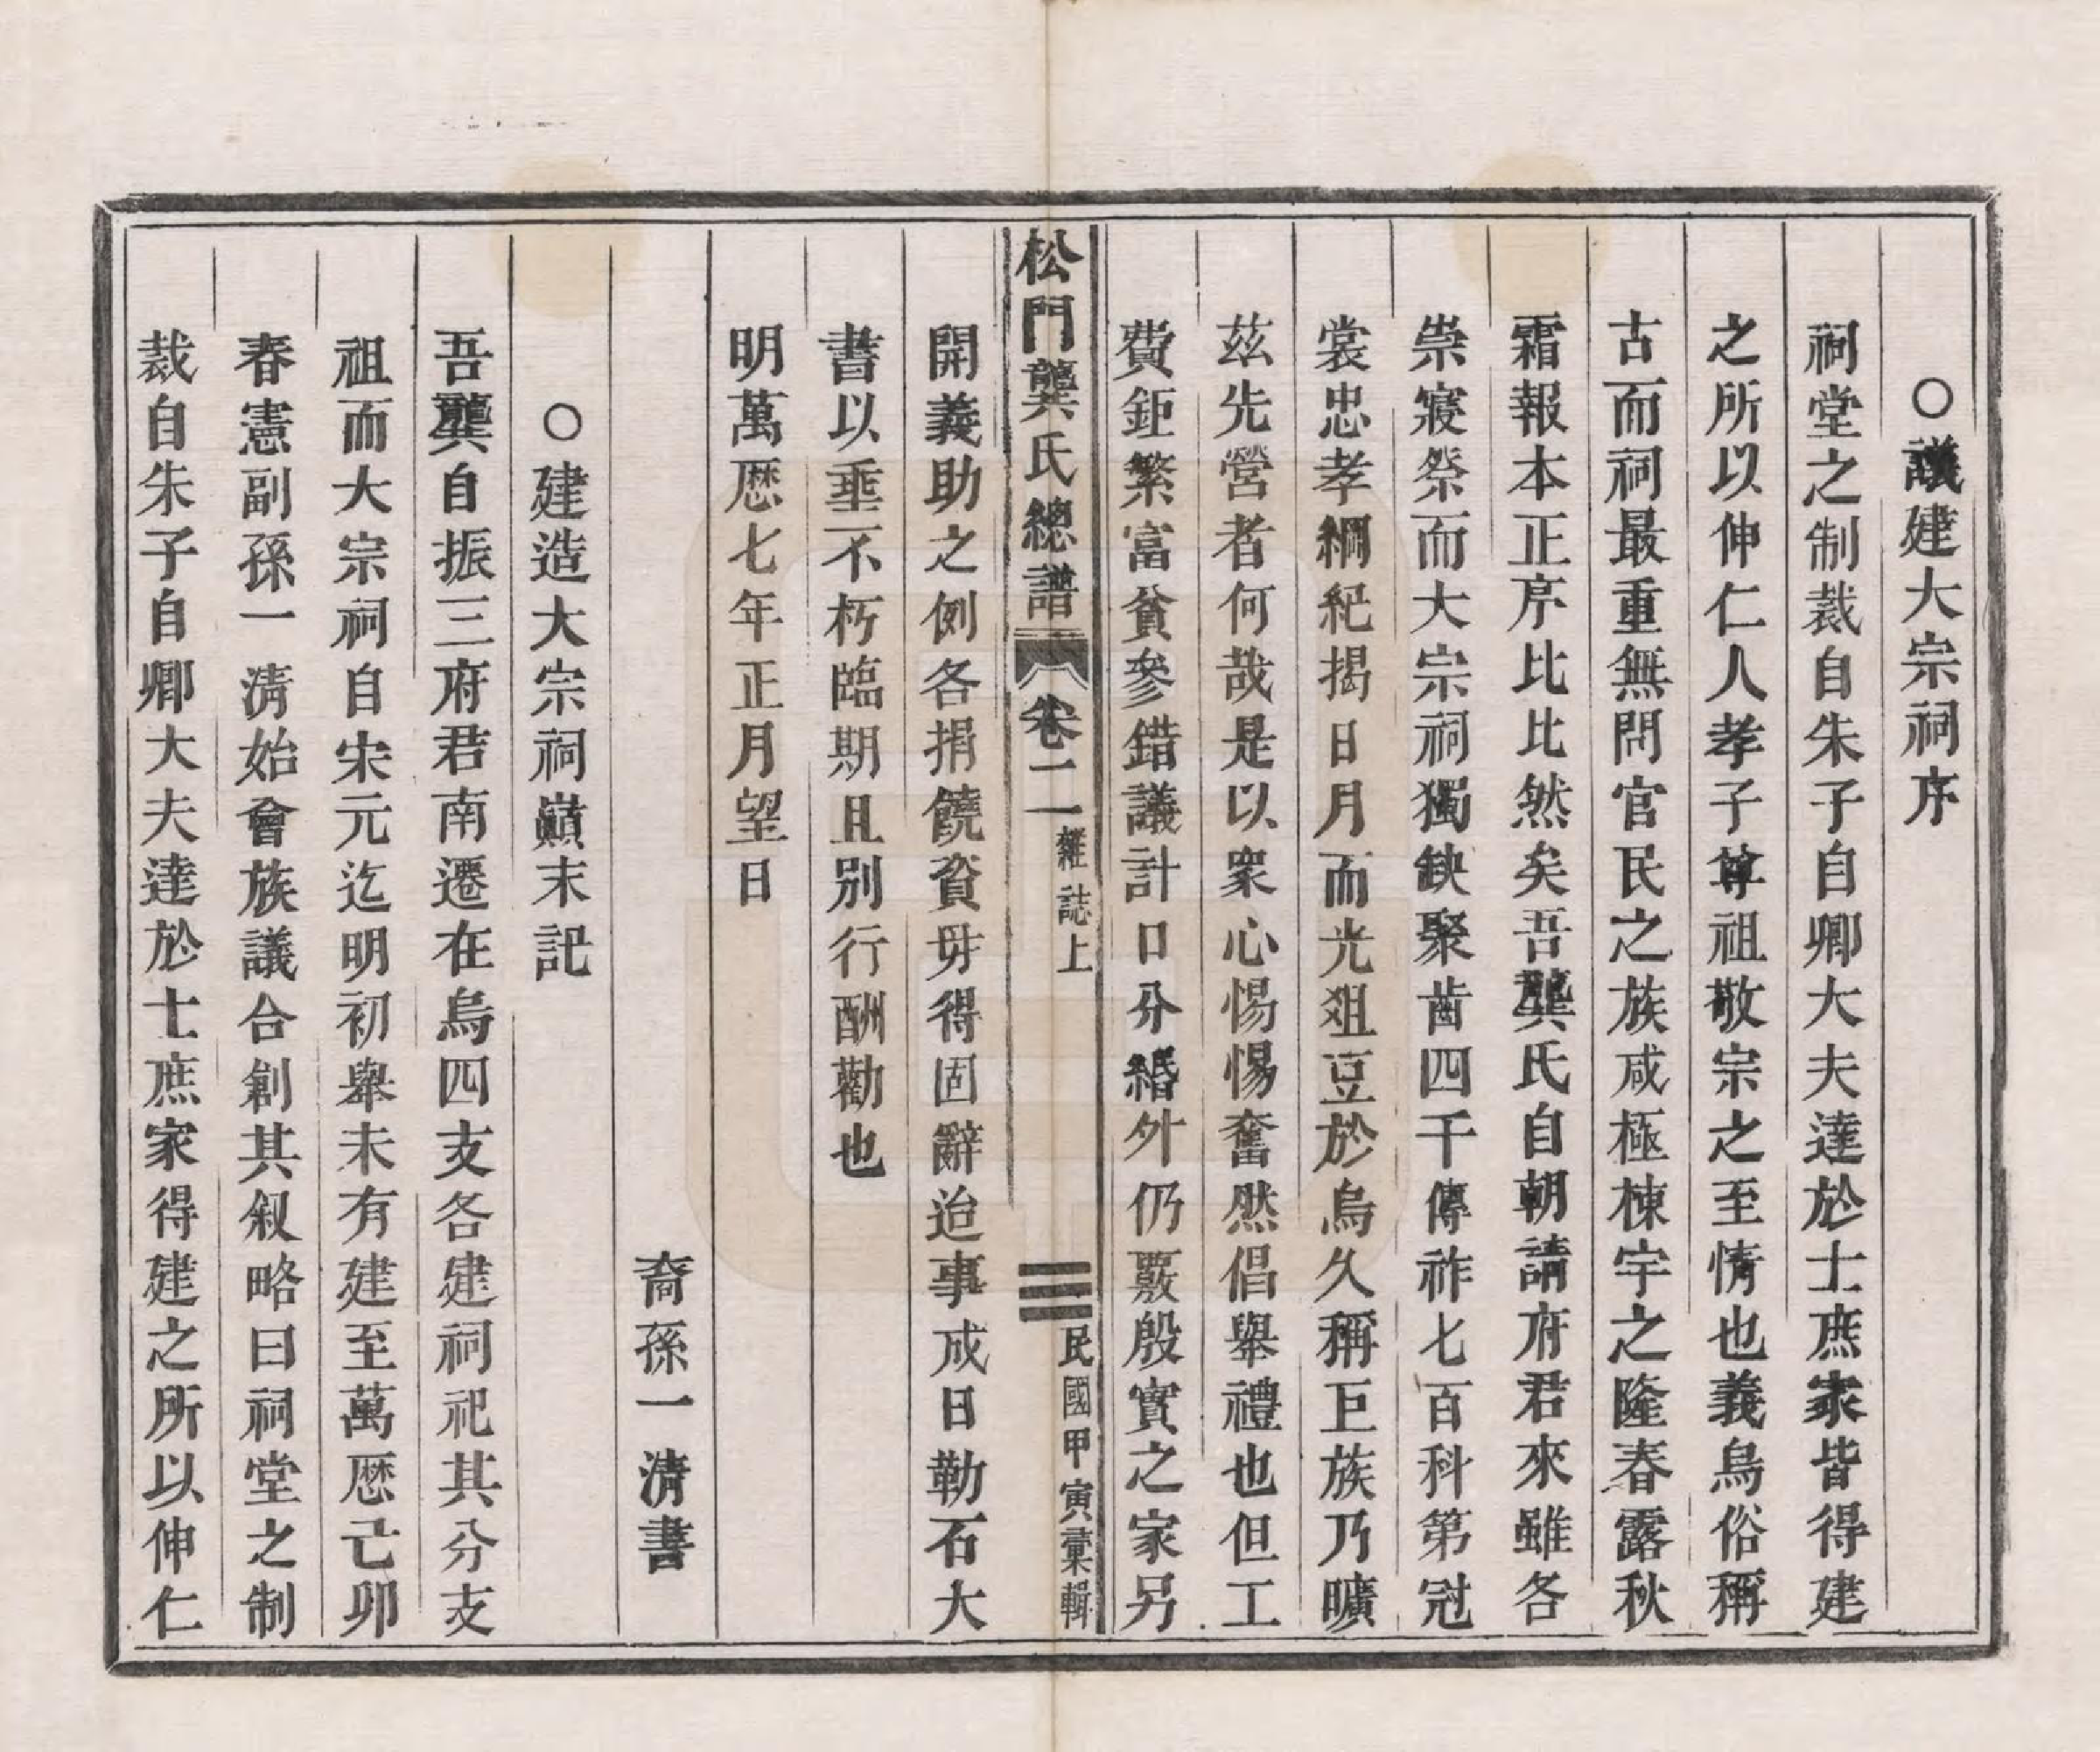 ○議建大宗祠序
祠堂之制裁自朱子自卿大夫達於士庶家皆得建
之所以伸仁人孝子尊祖敬宗之至情也義烏俗稱
古而祠最重無問官民之族咸極棟宇之隆春露秋
霜報本正序比比然矣吾龔氏自朝請府君來雖各
祟寢祭而大宗祠獨缺聚齒四千傳祚七百科第冠
裳忠孝綱紀揭日月而光俎豆於烏久稱巨族乃曠
茲先營者何哉是以衆心惕惕奮然倡舉禮也但工
費鉅繁富貧參錯議計口分緡外仍覈殷實之家另
松門龔氏總譜 卷二 雜誌上 三 民國甲寅彙輯
開義助之例各捐饒資毋得固辭迨事成日勒石大
書以垂不朽臨期且別行酬勸也
明萬厯七年正月望日
裔孫一清書
○建造大宗祠巔末記
吾龔自振三府君南遷在烏四支各建祠祀其分支
祖而大宗祠自宋元迄明初舉未有建至萬厯己卯
春憲副孫一清始會族議合創其叙略曰祠堂之制
裁自朱子自卿大夫達於士庶家得建之所以伸仁